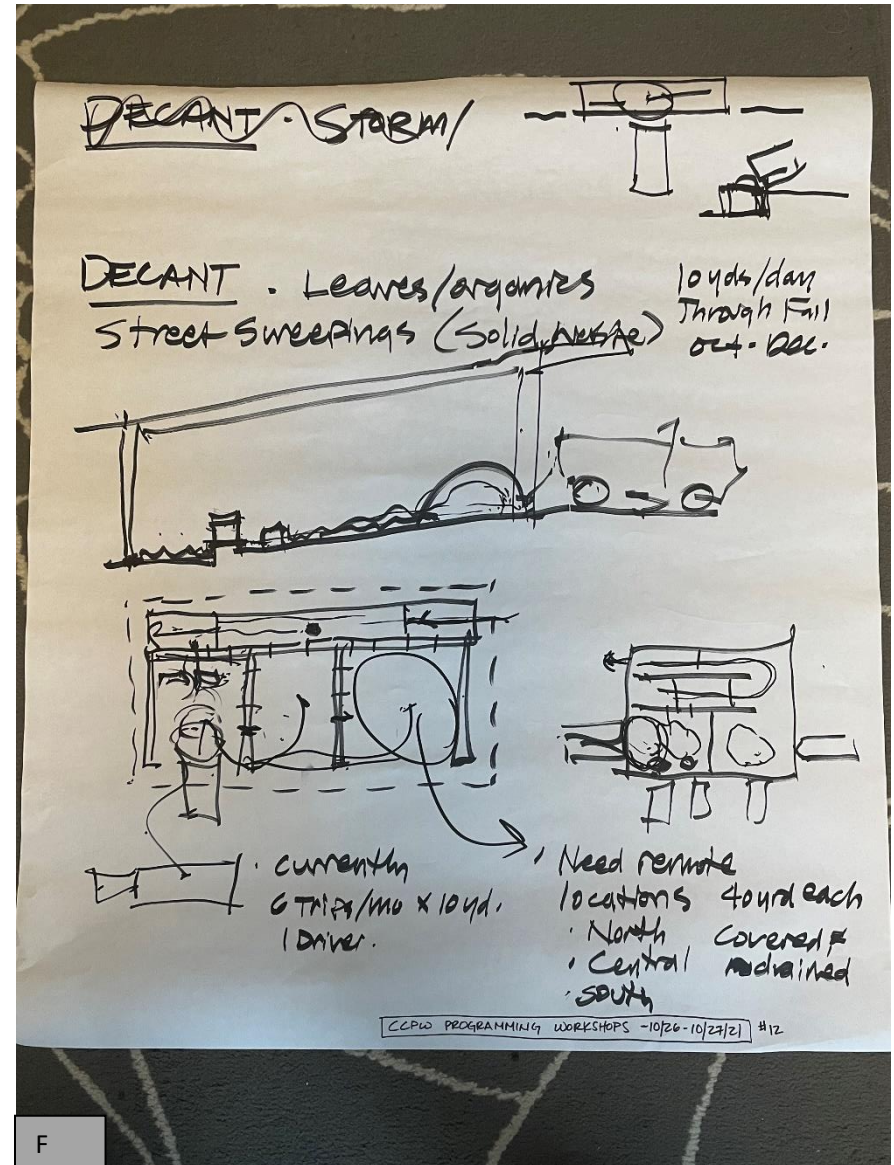 DECANT · STORM/
DECANT · Leaves/organics
Street Sweepings (Solid Waste)
10 yds/day
Through Fall
Oct - Dec.
· currently
6 Trips/mo x 10 yd.
1 Driver.
· Need remote
locations 40 yrd each
· North covered &
· Central drained
· South
CCPW PROGRAMMING WORKSHOPS -10/26-10/27/21 #12
F